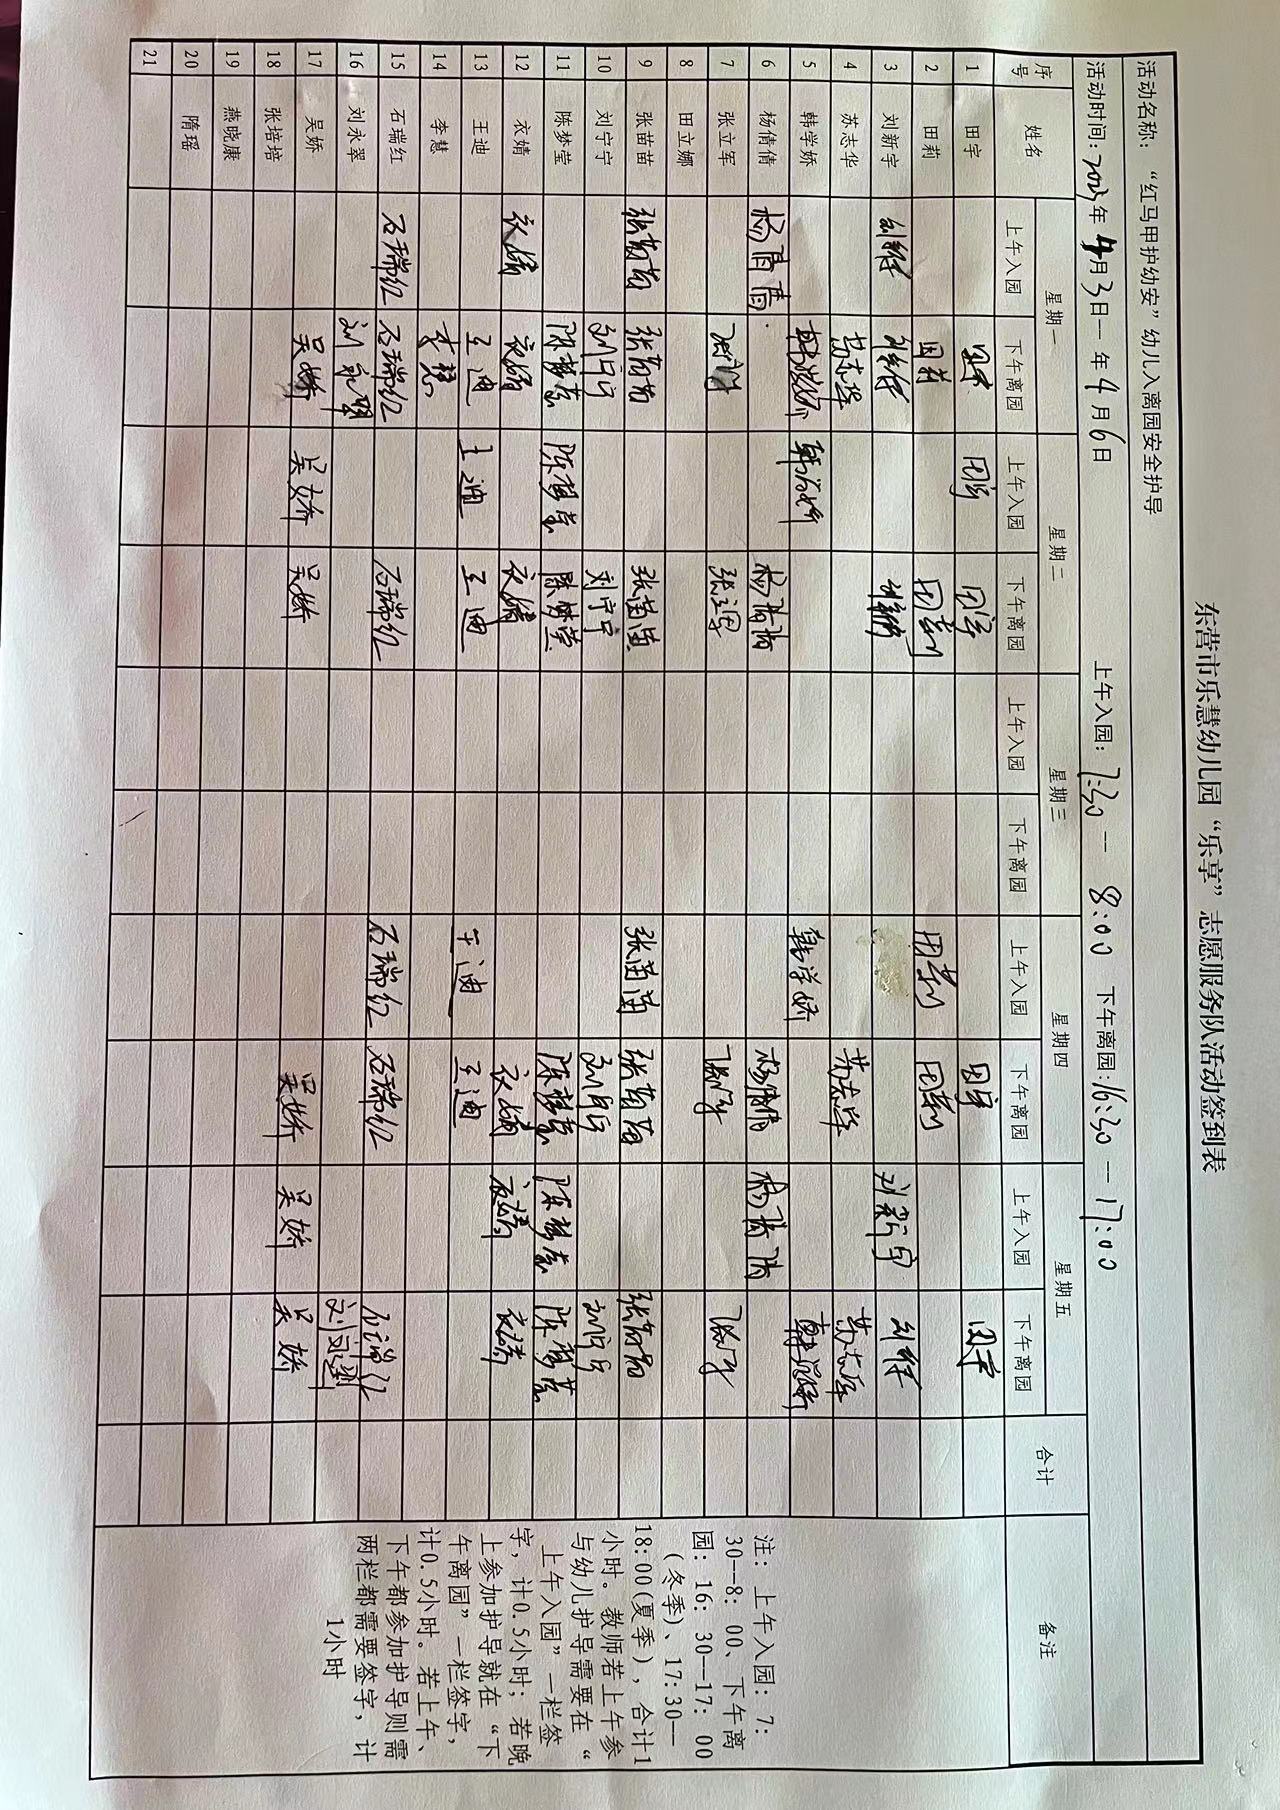 东营市乐慧幼儿园“乐享”志愿服务队活动签到表
活动名称：“红马甲护幼安”幼儿入离园安全护导
活动时间：2023年4月3日一 年4月6日 上午入园：7:30一 8:00 下午离园：16:30一17:00
序号 姓名 星期一 星期二 星期三 星期四 星期五 合计 备注
上午入园 下午离园 上午入园 下午离园 上午入园 下午离园 上午入园 下午离园 上午入园 下午离园
1 田宇 田宇 田宇 田宇 田宇 田宇
2 田莉 田莉 田莉 田莉 田莉
3 刘新宇 刘新宇 刘新宇 刘新宇 刘新宇 刘新宇
4 苏志华 苏志华 苏志华 苏志华
5 韩学娇 韩学娇 韩学娇 韩学娇 韩学娇
6 杨倩倩 杨倩倩 杨倩倩 杨倩倩 杨倩倩
7 张立军 张立军
8 田立娜
9 张苗苗 张苗苗 张苗苗 张苗苗 张苗苗 张苗苗 张苗苗
10 刘宁宁 刘宁宁 刘宁宁 刘宁宁 刘宁宁
11 陈梦莹 陈梦莹 陈梦莹 陈梦莹 陈梦莹 陈梦莹 陈梦莹
12 衣婧 衣婧 衣婧 衣婧 衣婧 衣婧 衣婧
13 王迪 王迪 王迪 王迪 王迪 王迪
14 李慧 李慧
15 石瑞红 石瑞红 石瑞红 石瑞红 石瑞红 石瑞红 石瑞红
16 刘永翠 刘永翠 刘永翠
17 吴娇 吴娇 吴娇 吴娇 吴娇 吴娇 吴娇
18 张培培
19 燕晓康
20 隋瑶
21
注：上午入园：7：
30—8：00、下午离
园：16：30—17：00
（冬季）、17:30—
18:00(夏季），合计1
小时。教师若上午参
与幼儿护导需要在“
上午入园”一栏签
字，计0.5小时；若晚
上参加护导就在“下
午离园”一栏签字，
计0.5小时。若上午、
下午都参加护导则需
两栏都需要签字，计
1小时